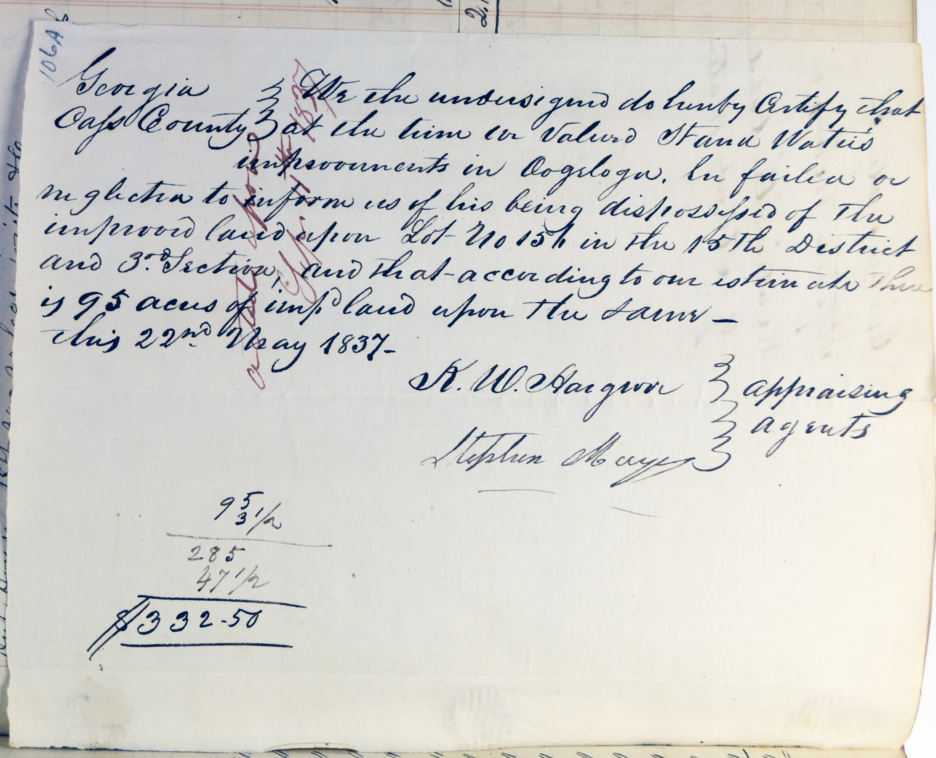 106 A
Georgia } We the undersigned do hereby Certify that
Cass County } at the time we Valued Stand Watie's
improvements in Oogeloga. he failed or
neglected to inform us of his being dispossessed of the
improved land upon Lot No 151 in the 15th District
and 3rd Section, and that according to our estimate there
is 95 acres of imp'd land upon the same —
this 22nd May 1837 -
R. W. Hargrove } appraising
Stephen Mayes } agents
95
3 1/2
285
47 1/2
$332-50
1837